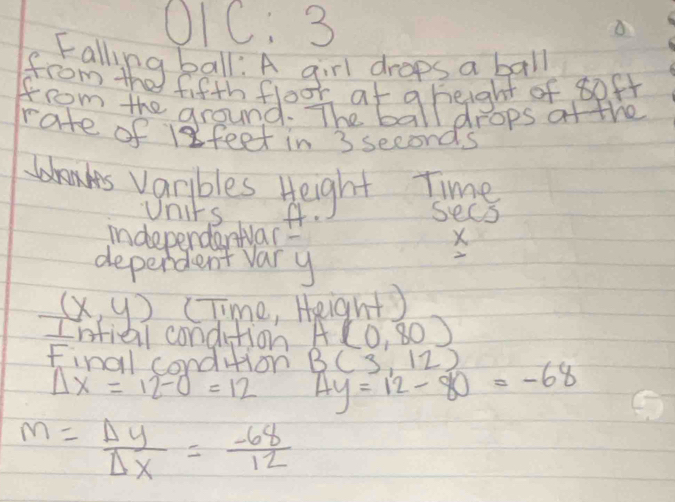 OIC: 3
Falling ball: A girl drops a ball
from the fifth floor at a height of 80ft
from the ground. The ball drops at the
rate of 12 feet in 3 seconds
Varibles Height Time
Units ft. secs
independent Var - x
dependent Var y -
(x, y) (Time, Height)
Intial condition A (0, 80)
Final condition B (3, 12)
Δx = 12-0 = 12 Δy = 12 - 80 = -68
m = Δy/Δx = -68/12